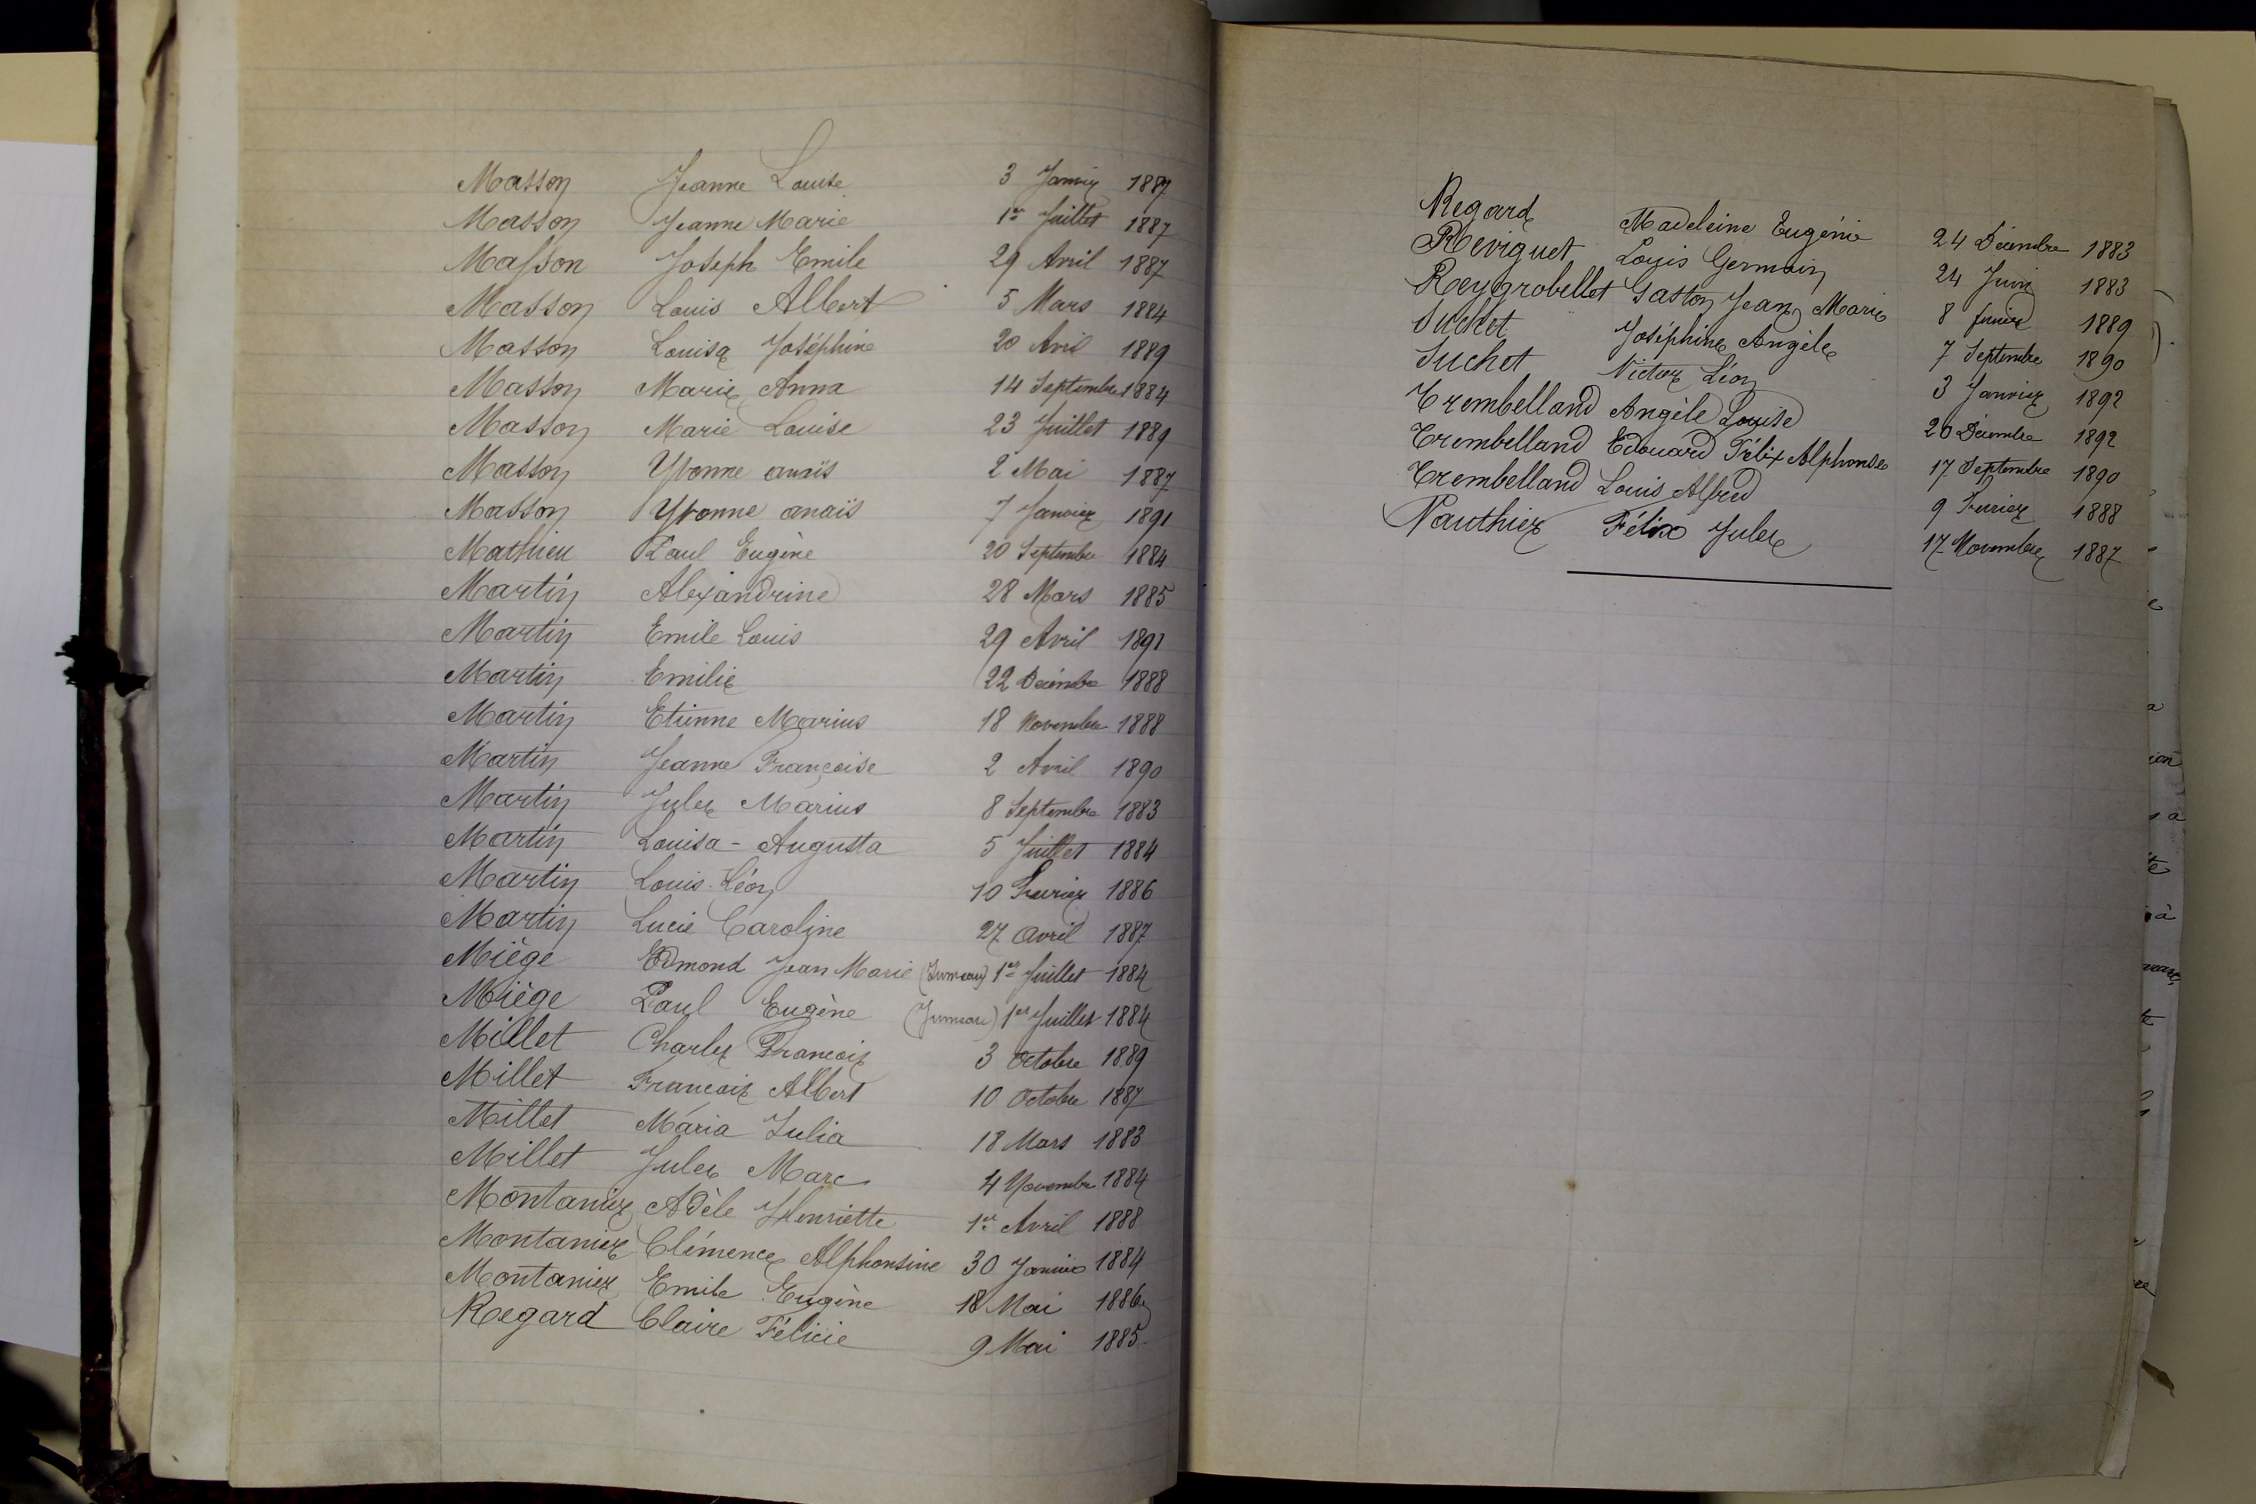 Masson Jeanne Louise 3 Janvier 1887
Masson Jeanne Marie 1er Juillet 1887
Masson Joseph Emile 29 Avril 1887
Masson Louis Albert 5 Mars 1884
Masson Louisa Joséphine 20 Avril 1889
Masson Marie Anna 14 Septembre 1884
Masson Marie Louise 23 Juillet 1889
Masson Yvonne anaïs 2 Mai 1887
Masson Yvonne anaïs 7 Janvier 1891
Mathieu Paul Eugène 20 Septembre 1884
Martin Alexandrine 28 Mars 1885
Martin Emile Louis 29 Avril 1891
Martin Emilie 22 Décembre 1888
Martin Etienne Marius 18 Novembre 1888
Martin Jeanne Françoise 2 Avril 1890
Martin Jules Marius 8 Septembre 1883
Martin Louisa - Augusta 5 Juillet 1884
Martin Louis Léon 10 Fevrier 1886
Martin Lucie Caroline 27 avril 1887
Miège Edmond Jean Marie (Jumeau) 1er Juillet 1884
Miège Paul Eugène (Jumeau) 1er Juillet 1884
Millet Charles Francois 3 Octobre 1889
Millet Francois Albert 10 Octobre 1887
Millet Maria Julia 18 Mars 1883
Millet Jules Marc 4 Novembre 1884
Montanier Adèle Henriette 1er Avril 1888
Montanier Clémence Alphonsine 30 Janvier 1884
Montanier Emile Eugène 18 Mai 1886
Regard Claire Félicie 9 Mai 1885
Regard Madeleine Eugénie 24 Décembre 1883
Reviguet Louis Germain 24 Juin 1883
Reygrobellet Gaston Jean Marie 8 1889
Suchet Joséphine Angèle 7 Septembre 1890
Suchet Victor Léon 3 Janvier 1892
Trembelland Angèle Louise 20 Décembre 1892
Trembelland Edouard Félix Alphonse 17 Septembre 1890
Trembelland Louis Alfred 9 Fevrier 1888
Vauthier Félix Jules 17 Novembre 1887